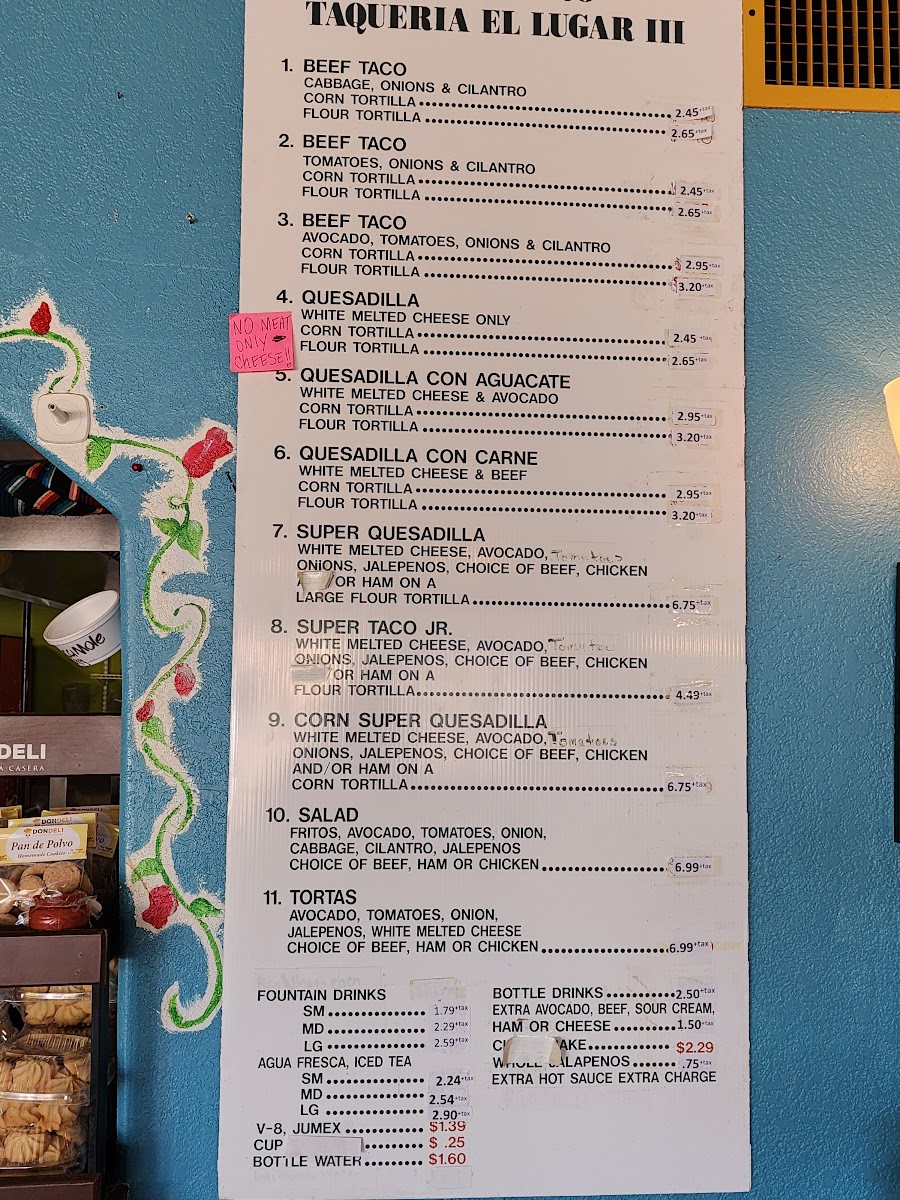 TAQUERIA EL LUGAR III
1. BEEF TACO
CABBAGE, ONIONS & CILANTRO
CORN TORTILLA 2.45+tax
FLOUR TORTILLA 2.65+tax
2. BEEF TACO
TOMATOES, ONIONS & CILANTRO
CORN TORTILLA 2.45+tax
FLOUR TORTILLA 2.65+tax
3. BEEF TACO
AVOCADO, TOMATOES, ONIONS & CILANTRO
CORN TORTILLA 2.95+tax
FLOUR TORTILLA 3.20+tax
4. QUESADILLA
WHITE MELTED CHEESE ONLY
CORN TORTILLA 2.45+tax
FLOUR TORTILLA 2.65+tax
NO MEAT
ONLY
CHEESE!!
5. QUESADILLA CON AGUACATE
WHITE MELTED CHEESE & AVOCADO
CORN TORTILLA 2.95+tax
FLOUR TORTILLA 3.20+tax
6. QUESADILLA CON CARNE
WHITE MELTED CHEESE & BEEF
CORN TORTILLA 2.95+tax
FLOUR TORTILLA 3.20+tax
7. SUPER QUESADILLA
WHITE MELTED CHEESE, AVOCADO, Tomatoes
ONIONS, JALEPENOS, CHOICE OF BEEF, CHICKEN
/OR HAM ON A
LARGE FLOUR TORTILLA 6.75+tax
8. SUPER TACO JR.
WHITE MELTED CHEESE, AVOCADO,
ONIONS, JALEPENOS, CHOICE OF BEEF, CHICKEN
/OR HAM ON A
FLOUR TORTILLA 4.49+tax
9. CORN SUPER QUESADILLA
WHITE MELTED CHEESE, AVOCADO, Tomatoes
ONIONS, JALEPENOS, CHOICE OF BEEF, CHICKEN
AND/OR HAM ON A
CORN TORTILLA 6.75+tax
10. SALAD
FRITOS, AVOCADO, TOMATOES, ONION,
CABBAGE, CILANTRO, JALEPENOS
CHOICE OF BEEF, HAM OR CHICKEN 6.99+tax
11. TORTAS
AVOCADO, TOMATOES, ONION,
JALEPENOS, WHITE MELTED CHEESE
CHOICE OF BEEF, HAM OR CHICKEN 6.99+tax
FOUNTAIN DRINKS
SM 1.79+tax
MD 2.29+tax
LG 2.59+tax
AGUA FRESCA, ICED TEA
SM 2.24+tax
MD 2.54+tax
LG 2.90+tax
V-8, JUMEX $1.39
CUP $ .25
BOTTLE WATER $1.60
BOTTLE DRINKS 2.50+tax
EXTRA AVOCADO, BEEF, SOUR CREAM,
HAM OR CHEESE 1.50+tax
$2.29
WHOLE JALAPENOS .75+tax
EXTRA HOT SAUCE EXTRA CHARGE
DELI
CASERA
DONDELI
Pan de Polvo
Homemade Cookies